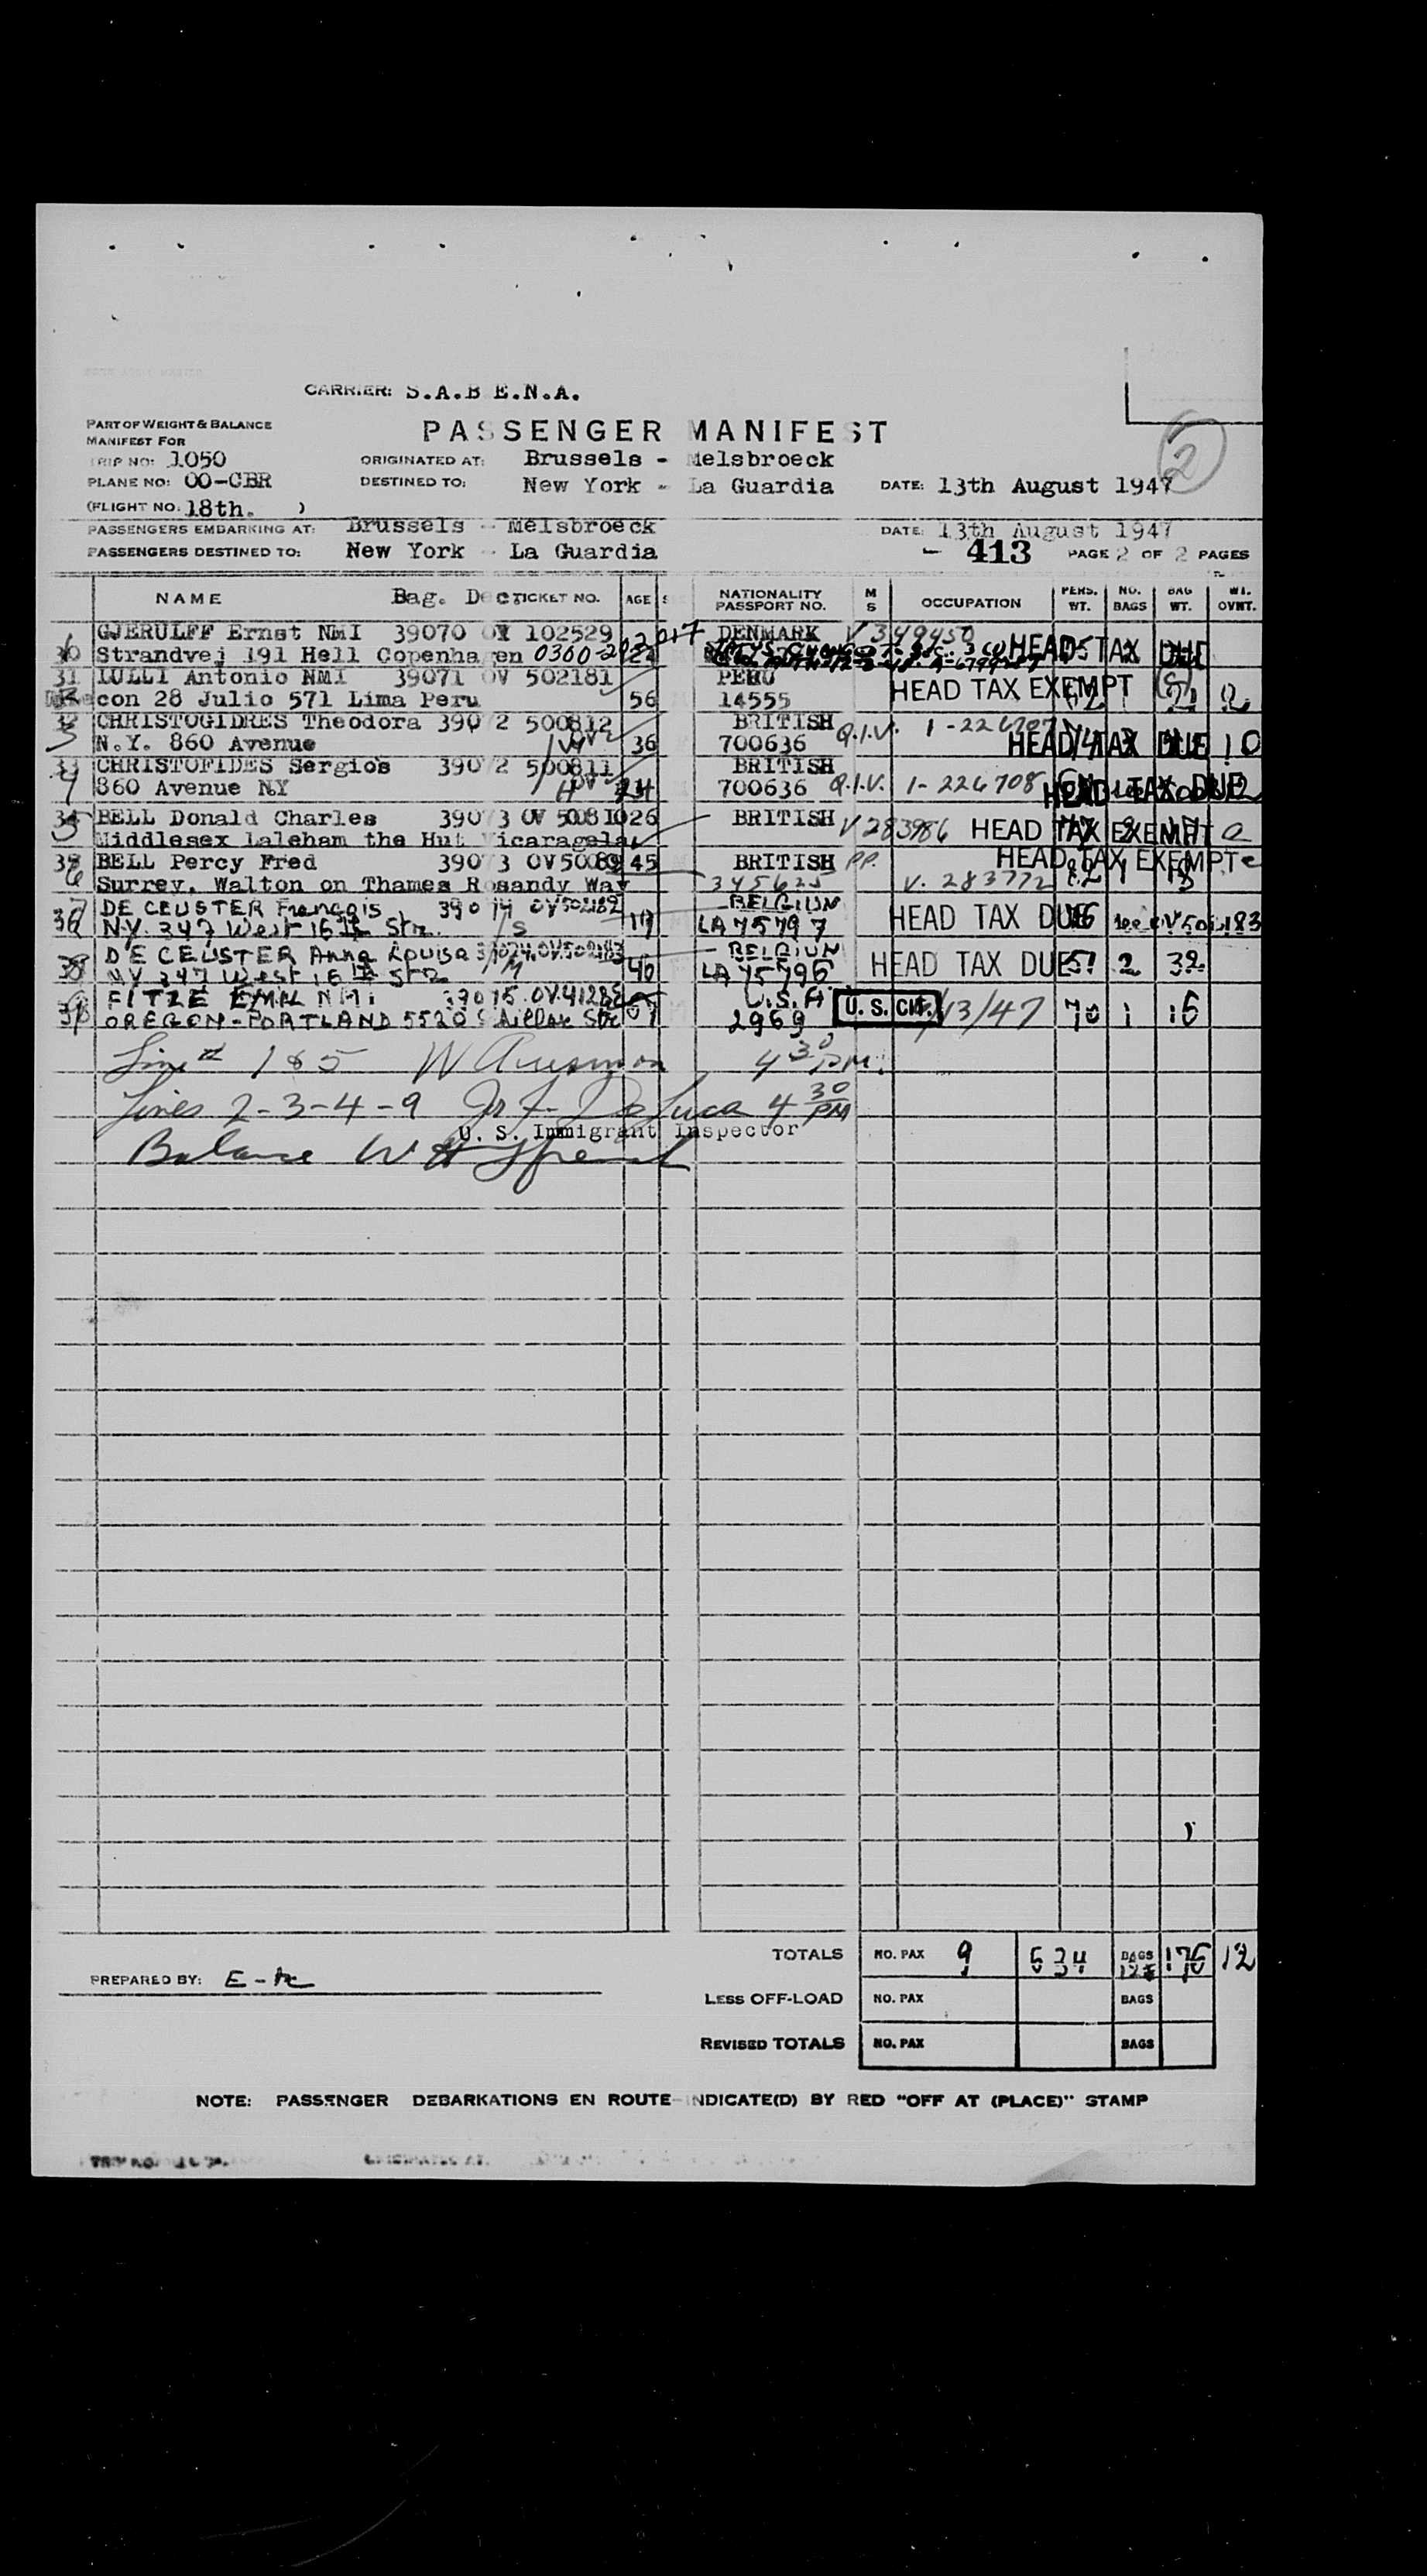 CARRIER: S.A.B E.N.A.
PART OF WEIGHT & BALANCE
MANIFEST FOR
PASSENGER MANIFEST
TRIP NO: 1050
ORIGINATED AT: Brussels - Melsbroeck
PLANE NO: OO-CBR
DESTINED TO: New York - La Guardia
DATE: 13th August 1947
2
(FLIGHT NO. 18th. )
PASSENGERS EMBARKING AT: Brussels - Melsbroeck
DATE: 13th August 1947
PASSENGERS DESTINED TO: New York - La Guardia
- 413 PAGE 2 OF 2 PAGES
NAME Bag. Dec TICKET NO. AGE S NATIONALITY PASSPORT NO. M S OCCUPATION PERS. WT. NO. BAGS BAG WT. WT. OVWT.
GJERULFF Ernst NMI 39070 OV 102529 DENMARK V 349450
30 Strandvej 191 Hell Copenhagen HEAD TAX DUE
31 LULLI Antonio NMI 39071 OV 502181 PERU
con 28 Julio 571 Lima Peru 56 14555 HEAD TAX EXEMPT 2
32 CHRISTOGIDRES Theodora 39072 500812 BRITISH Q.I.V. 1-226707
3 N.Y. 860 Avenue 36 700636 HEAD TAX DUE 10
33 CHRISTOFIDES Sergios 39072 500811 BRITISH
4 860 Avenue NY 700636 Q.I.V. 1-226708 HEAD TAX DUE
34 BELL Donald Charles 39073 OV 500810 26 BRITISH V 283986 HEAD TAX EXEMPT
5 Middlesex Laleham the Hut Vicaragela
BELL Percy Fred 39073 45 BRITISH P.P. HEAD TAX EXEMPT
6 Surrey, Walton on Thames Rosandy Way 345625 V. 283772
7 DE CEUSTER Francois 39074 OV502182 BELGIUM
36 N.Y. 347 West 16th Str. S LA 75797 HEAD TAX DUE
DE CEUSTER Anna Louisa 39074 OV.502183 BELGIUM
N.Y 347 West 16th STR M 46 LA 75796 HEAD TAX DUE 2 32
FITZE EMIL NMI 39075 U.S.A.
OREGON-PORTLAND 5520 2969 U.S. CIT. 8/13/47 70 1 16
Line # 1 8 5 4 30 PM.
Lines 2-3-4-9 De Luca 4 30 PM
U. S. Immigrant Inspector
Balance W H
TOTALS NO. PAX 9 534 BAGS 176 12
PREPARED BY:
LESS OFF-LOAD NO. PAX BAGS
REVISED TOTALS NO. PAX BAGS
NOTE: PASSENGER DEBARKATIONS EN ROUTE INDICATE(D) BY RED "OFF AT (PLACE)" STAMP